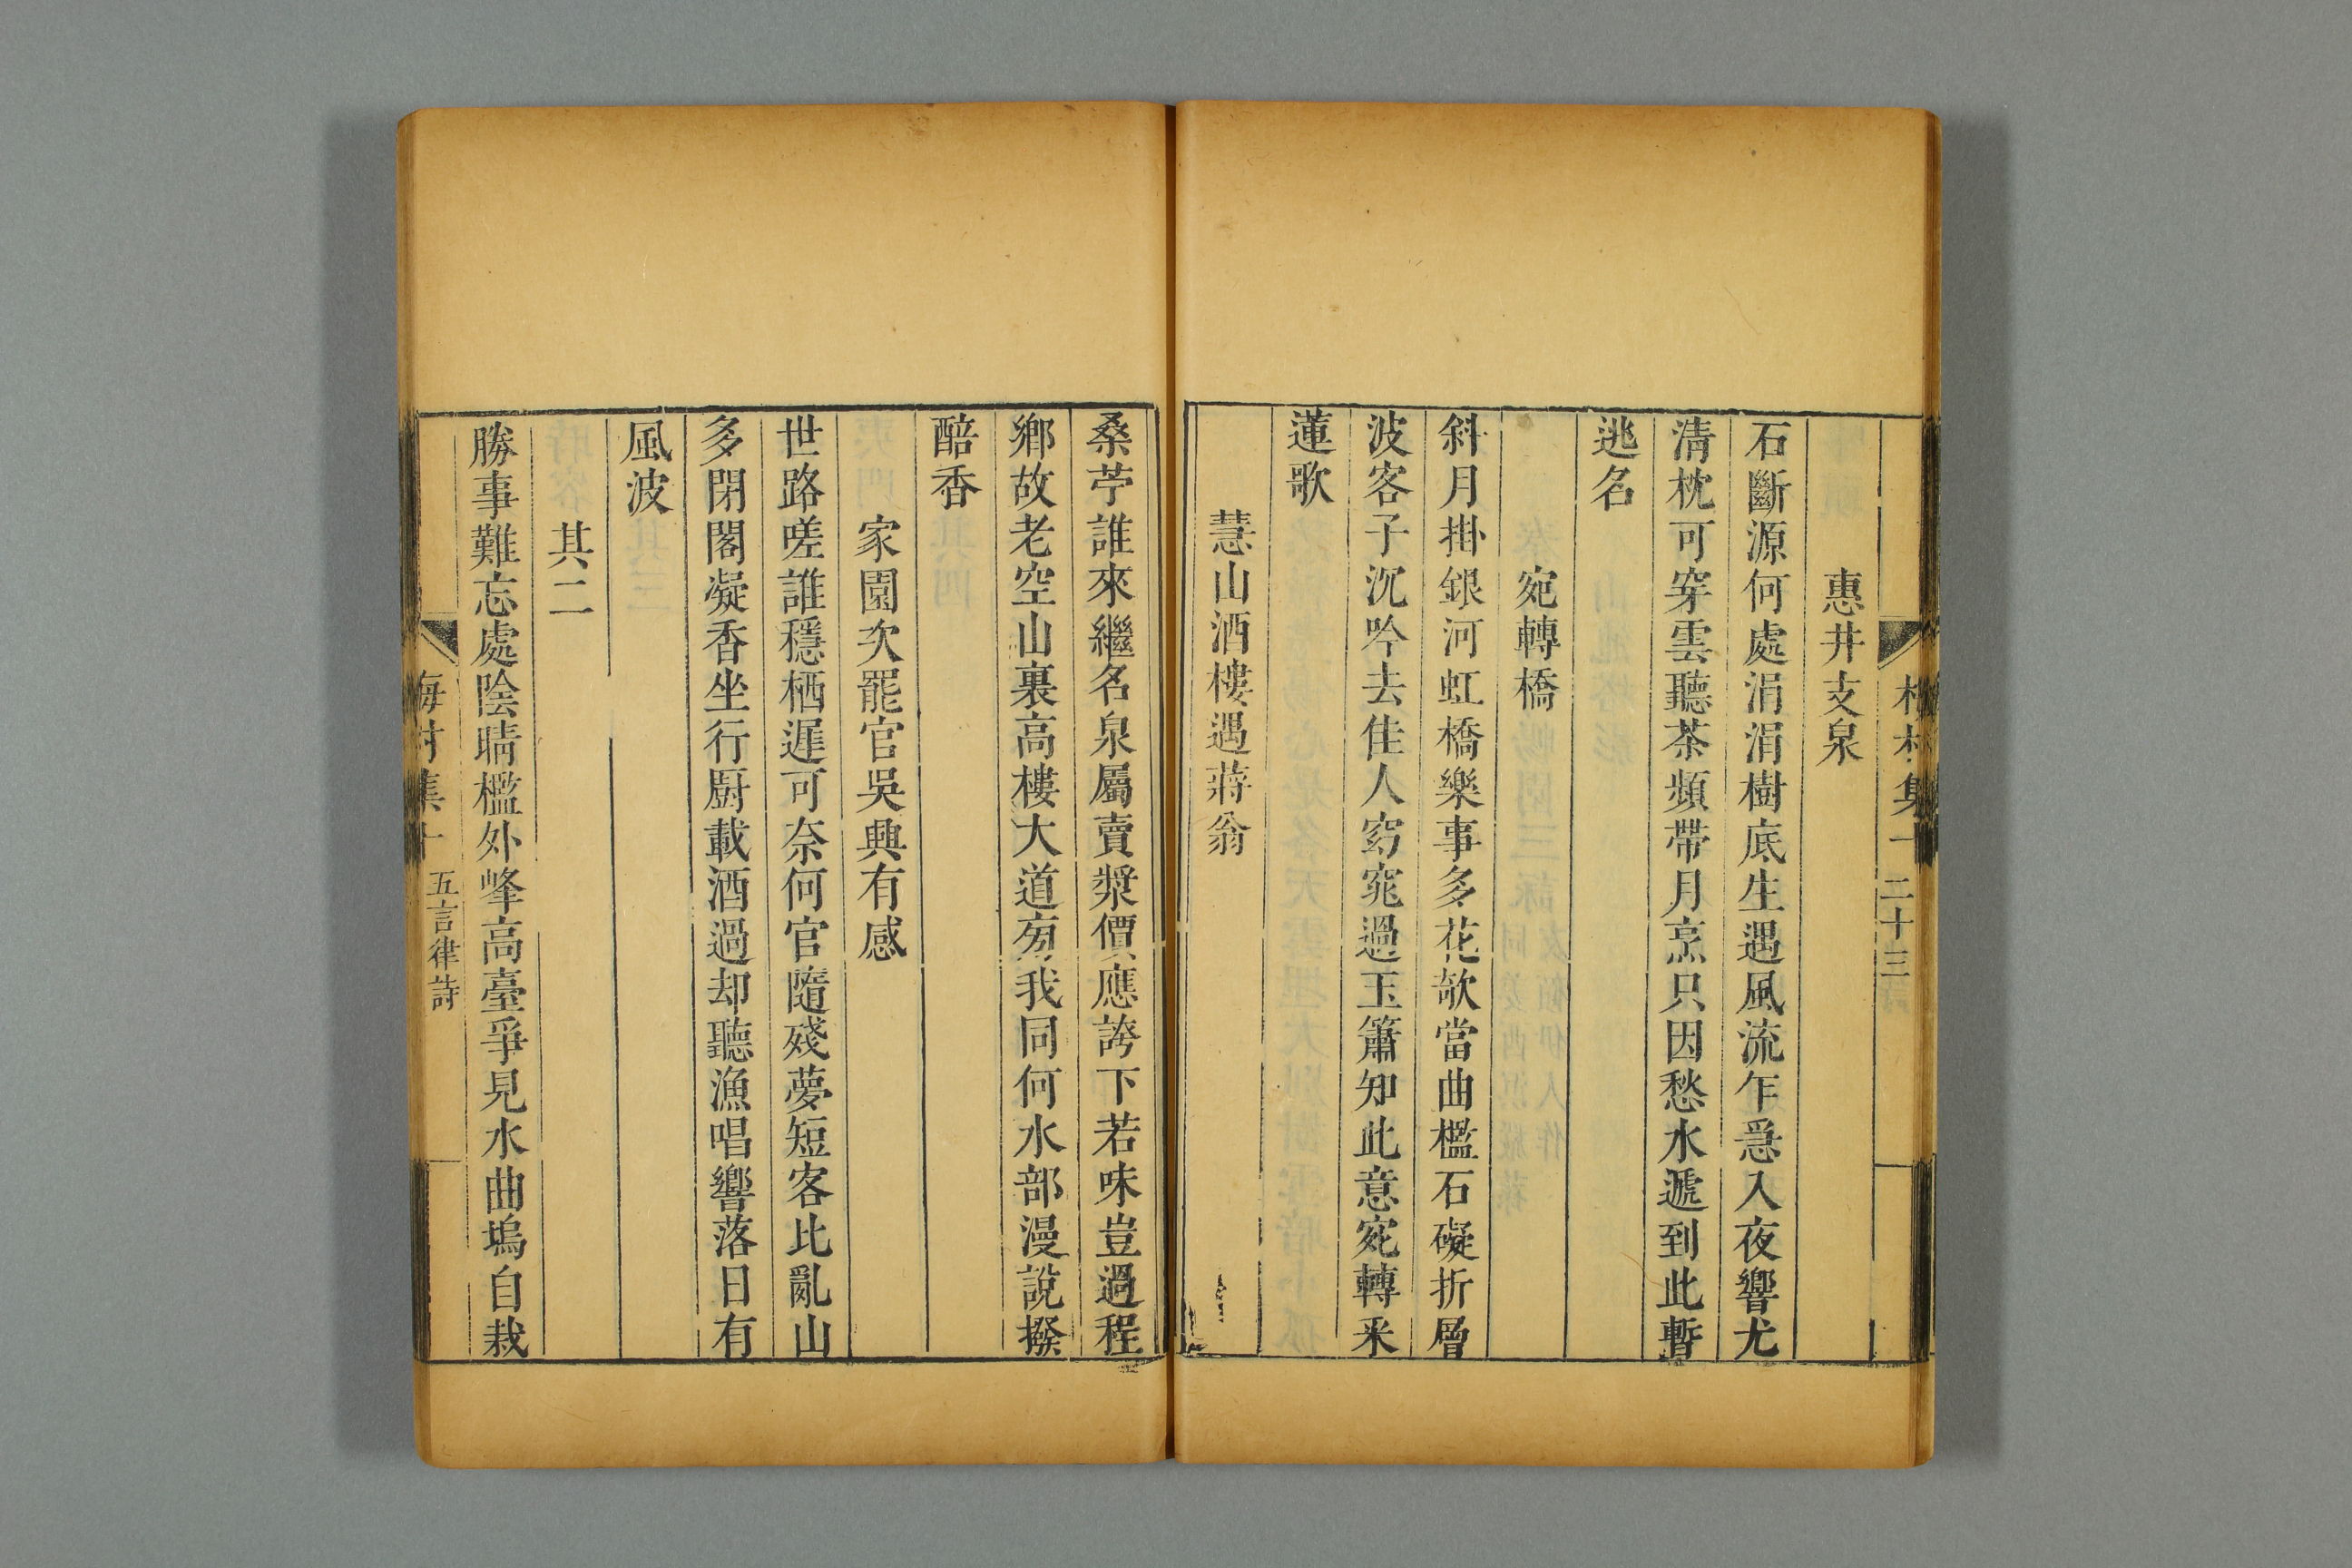 惠井支泉
石斷源何處涓涓樹底生遇風流乍急入夜響尤
清枕可穿雲聽茶頻帶月烹只因愁水遞到此暫
逃名
宛轉橋
斜月掛銀河虹橋樂事多花欹當曲檻石礙折層
波客子沉吟去佳人窈窕過玉簫知此意宛轉采
蓮歌
慧山酒樓遇蔣翁
桑苧誰來繼名泉屬賣漿價應誇下若味豈過程
鄉故老空山裏高樓大道旁我同何水部漫說撥
醅香
家園次罷官吳興有感
世路嗟誰穩栖遲可奈何官隨殘夢短客比亂山
多閉閣凝香坐行廚載酒過却聽漁唱響落日有
風波
其二
勝事難忘處陰晴檻外峰高臺爭見水曲塢自栽
二十三
五言律詩